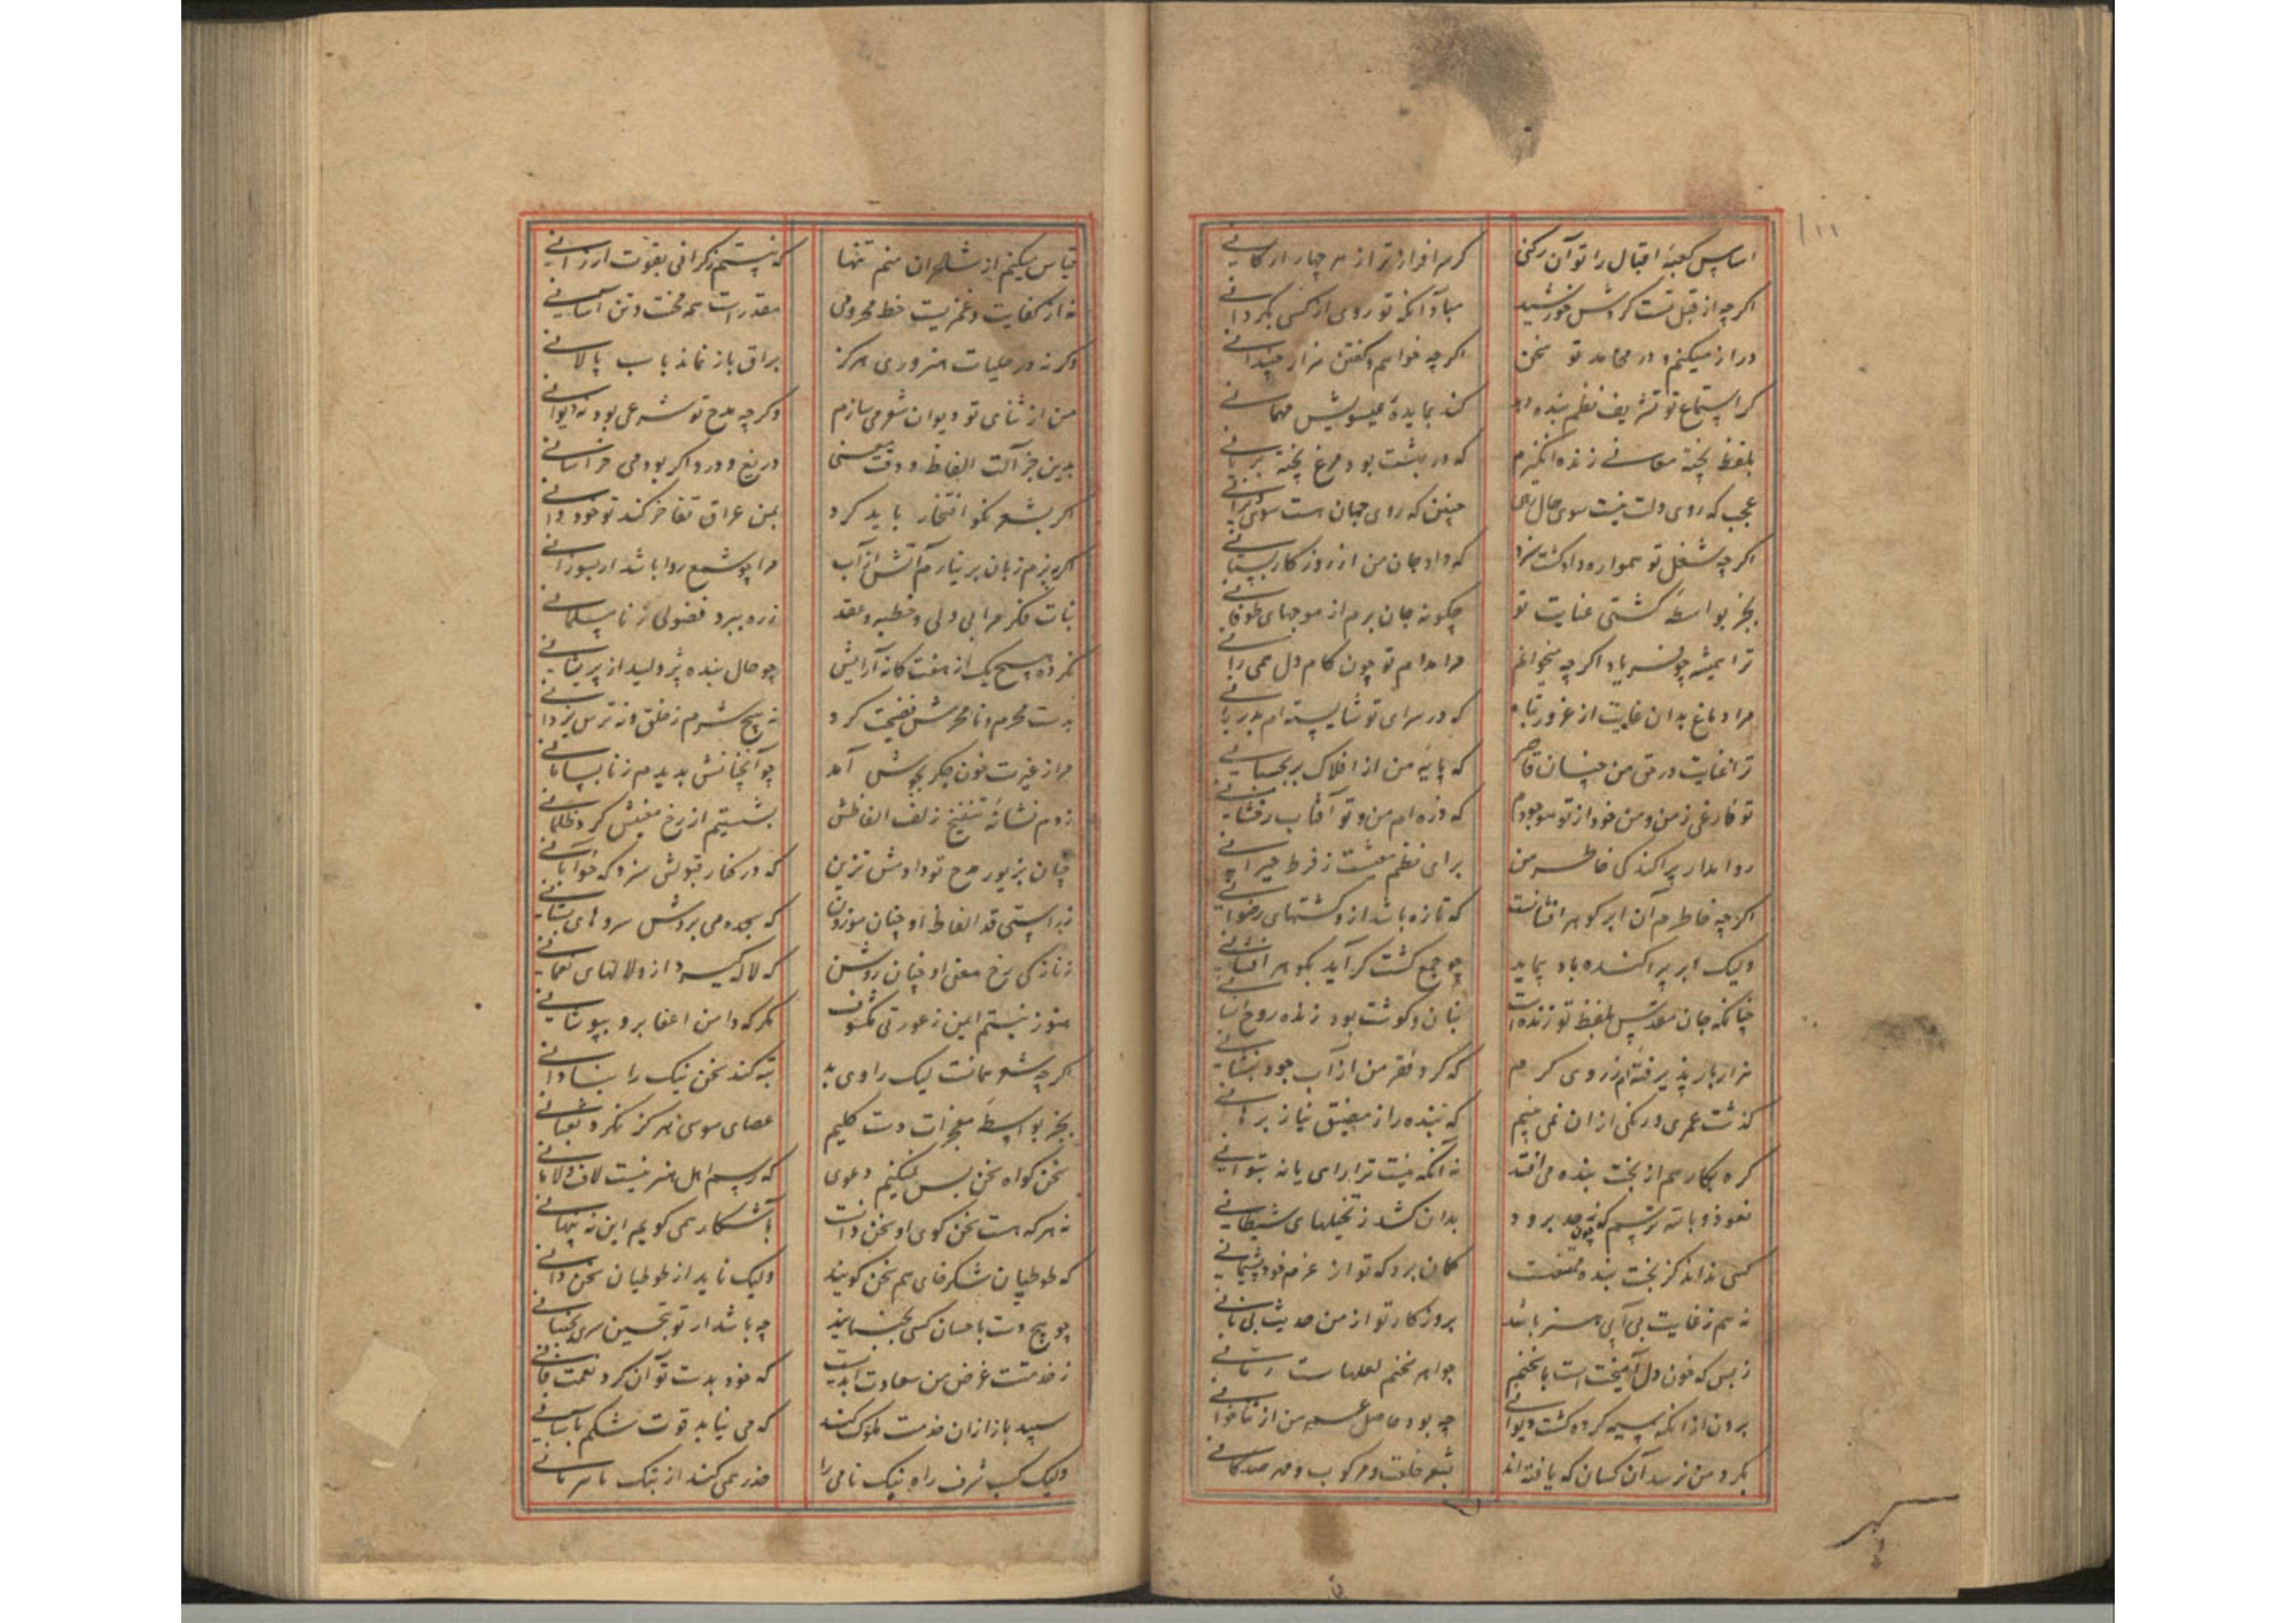 اساس کعبهٔ اقبال را تو آن رکنی که سرافرازتر از هر چهار ارکانی
اگرچه از قبل تست گردش خورشید مباد آنکه تو روی از کسی بگردانی
دراز میکنم و در محامد تو سخن اگرچه خواهم گفتن هزار چندانی
کر استماع تو تشریف نظم بنده دهد کند بمایدهٔ عیسویش مهمانی
بلفظ پخته معانی زنده انگیزم که در بهشت بود مرغ پخته بریانی
عجب که روی دلت نیست سوی حال رهی چنین که روی جهان هست سوی
اگرچه شغل تو همواره داد کشت سزد که داد جان من از روزگار بستانی
بجز بواسطهٔ کشتی عنایت تو چگونه جان برم از موجهای طوفانی
ترا همیشه چو اگرچه میخوانم مرا مدام تو چون کام دل همی رانی
مرا دماغ بدان غایت از غرور تباه که در سرای تو شایسته ام بدربانی
ترا عنایت در حق من چنان قاصر که پایهٔ من از افلاک بر
تو فارغی ز من و من خود از تو موجودم که ذره ام من و تو آفتاب رخشانی
روا مدار پراکندگی خاطر من برای نظم معیشت ز فرط حیرانی
اگرچه خاطرم آن ابر گوهر افشانست که تازه باشد ازو کشتهای رضوانی
ولیک ابر پراکنده باد پیماید چو جمع گشت گر آید بگوهر افشانی
چنانکه جان مقدس بلفظ تو زنده است بنان و گوشت بود زنده روح انسانی
هزار بار پذیرفته ام ز روی کرم که گرد فقر من از آب جود بنشانی
گذشت عمری و رنگی از ان نمی بینم که بنده را ز مضیق نیاز برهانی
گره بکار هم از بخت بنده می افتد نه آنکه نیست ترا رای یا نه بتوانی
نعوذ بالله ترسم که چون بدان کشد ز تخیلهای شیطانی
کسی نداند کز بخت بنده گمان برد که تو از عزم خود پشیمانی
نه هم ز غایت بی آبی هنر باشد بروزگار تو از من حدیث بی نانی
ز بس که خون دل آمیخت است با سخنم جواهر سخنم لعلهاست رمانی
برون از انکه سیه کرده گشت دیوانی چه بود حاصل عمر من از ثناخوانی
بگرد من نرسد آن کسان که یافته اند بشعر خلعت و مرکوب و مهر صد کانی
قیاس میکنم از شاعران منم تنها که نیستم ز گرانی بقوت ارزانی
نه از کفایت و غمریست خط محرومی مقدرست همه محنت و تن آسانی
وگرنه در حلبات هنروری هرگز براق باز نماند باسب پالانی
من از ثنای تو دیوان شعر می سازم وگرچه مدح تو شرعی بود نه دیوانی
بدین جزالت الفاظ و دقت معنی دریغ و درد اگر بودمی خراسانی
اگر بشعر نکو افتخار باید کرد بمن عراق تفاخر کند تو خود دانی
اگر ببزم زبان بر نیارم آتش از آب مرا چو شمع روا باشد ار بسوزانی
بنات فکر مرا بی ولی و خطبه و عقد ز ره ببرد فضولی ز نامسلمانی
نکرده هیچ یک از هفت کانه آرایش چو حال بنده پژولیده از پریشانی
بدست محرم و نامحرمش فضیحت کرد نه هیچ شرم ز خلق و نه ترس یزدانی
مرا ز غیرت خون جگر بجوش آمد چو آنچنانش بدیدم ز نابسامانی
زدم نشانهٔ تنقیح زلف الفاظش بشستم از رخ معنیش گرد ظلمانی
چنان بزیور مدح تو دادمش تزیین که در کنار قبولش سزد که خوابانی
ز راستی قد الفاظ او چنان موزون که سجده می بردش سروهای بستانی
ز نازکی رخ معنی او چنان روشن که لاله گیرد ازو لالهای نعمانی
هنوز نیستم ایمن ز عورتی مکشوف مگر که دامن اغضا برو بپوشانی
اگرچه شعر همانست لیک راوی بد تبه کند سخن نیک را بنادانی
بجز بواسطهٔ معجزات دست کلیم عصای موسی هرگز نکرد ثعبانی
سخن گواه سخن بس نمیکنم دعوی که رسم اهل هنر نیست لاف و لامانی
نه هر که هست سخن گوی او سخن دانست بآشکار همی گویم این نه پنهانی
که طوطیان شکرخای هم سخن گویند ولیک ناید از طوطیان سخن دانی
چو هیچ دست باحسان کسی نجنبانید چه باشد ار تو بتحسین سری بجنبانی
ز خدمتت غرض من سعادت ابدیست که خود بدست توان کرد نعمت فانی
سپید باز ازان خدمت ملوک کند که می نیابد قوت شکم بآسانی
ولیک کسب شرف راه نیک نامی را حذر همی کند از ننگ